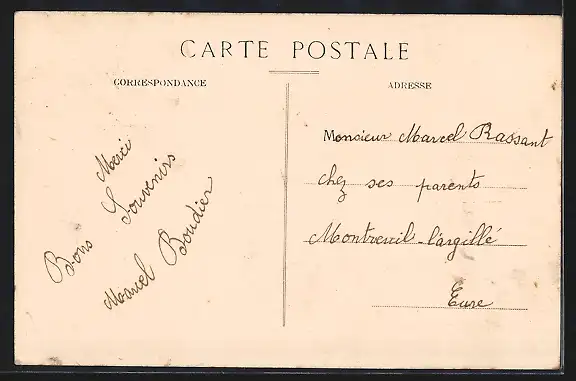 CARTE POSTALE
CORRESPONDANCE
ADRESSE
Merci
Bons Souvenirs
Marcel Boudier
Monsieur Marcel Rassant
chez ses parents
Montreuil-l'argillé
Eure